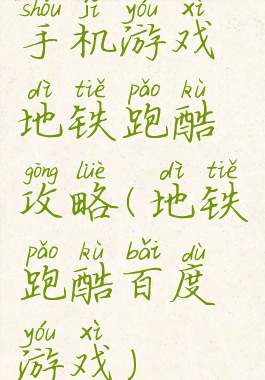 shǒu jī yóu xì
手机游戏
dì tiě pǎo kù
地铁跑酷
gōng lüè dì tiě
攻略(地铁
pǎo kù bǎi dù
跑酷百度
yóu xì
游戏)